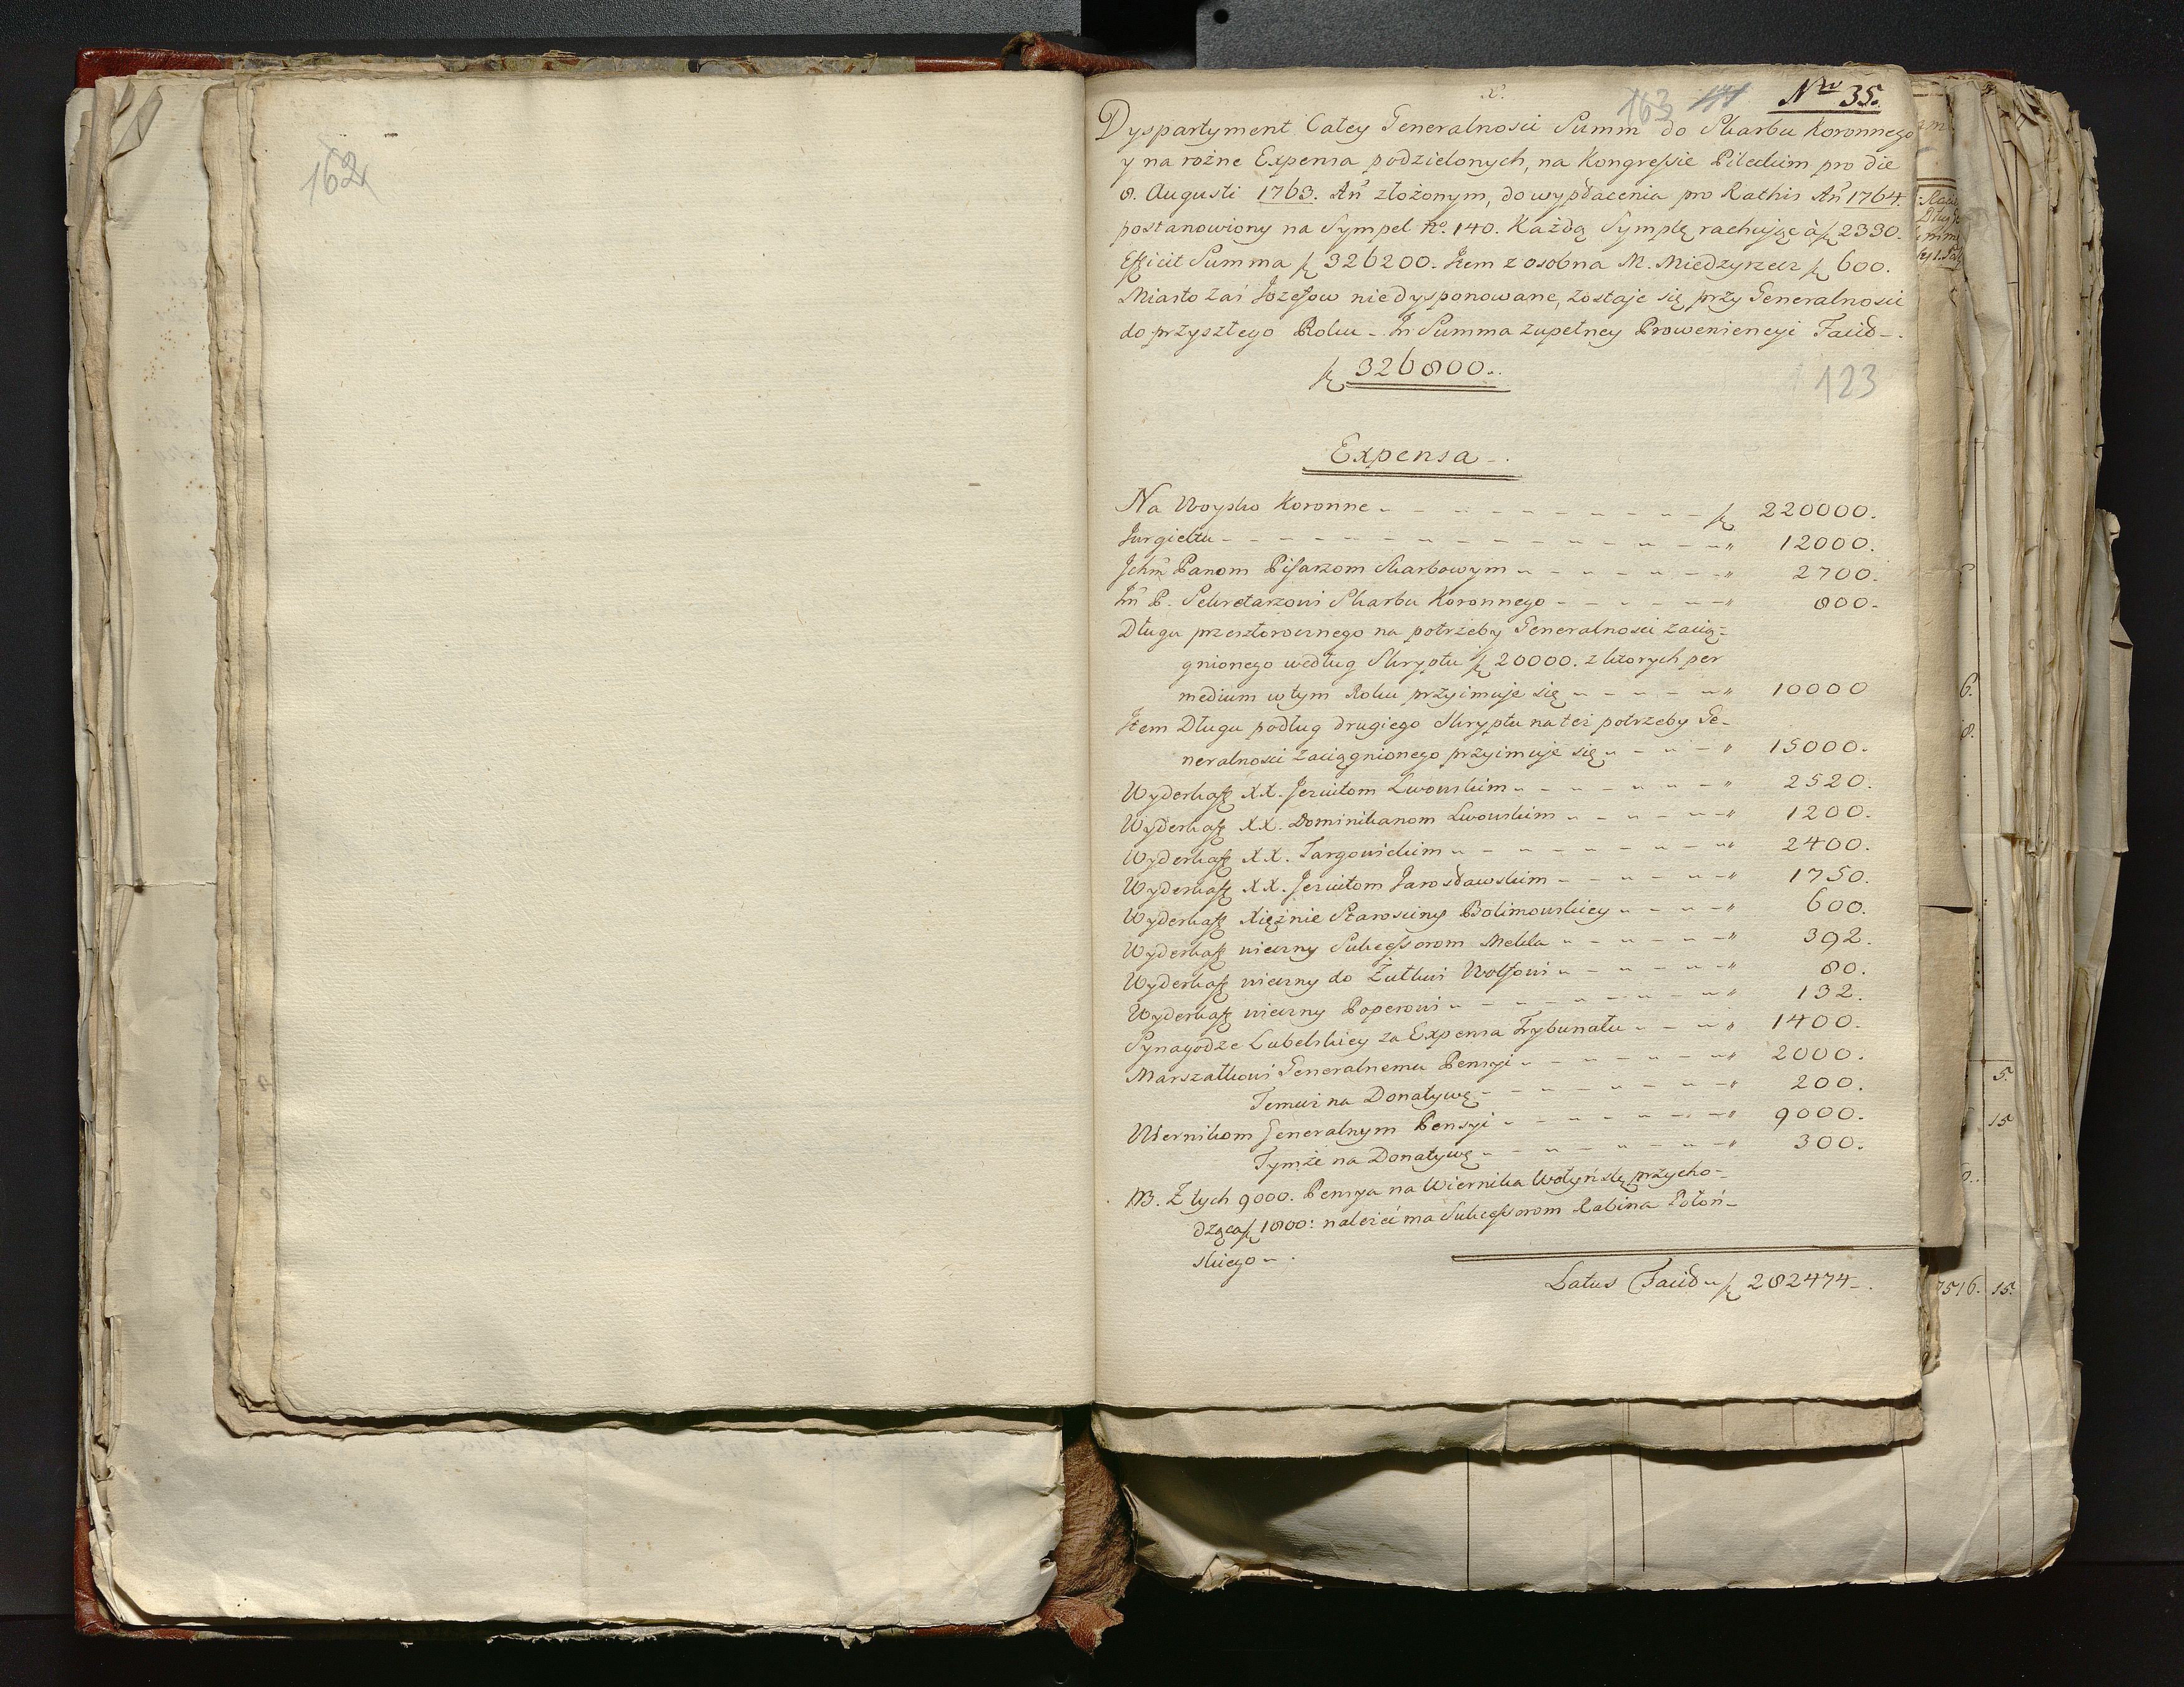 162
x.
163 Nro 35.
Dyspartyment Całey Generalnosci Summ do Skarbu Koronnego
y na rożne Expensa podzielonych, na Kongressie Pileckim pro die
8. Augusti 1763. An̄ złożonym, do wypłacenia pro Rathis An̄ 1764.
postanowiony na Sympel no. 140. Każdą Symplę rachując à f 2330.
Efficit Summa f 326200. Item z osobna M. Miedzyrzecz f 600.
Miasto zaś Jozefow niedysponowane, zostaje się przy Generalnosci
do przyszłego Roku - In Summa zupełney Proweniencyi Facid -.
f 326800..
123
Expensa -.
Na Woysko Koronne - - - - f 220000.
Jurgieltu - - - - " 12000.
Jchm̄ Panom Pisarzom Skarbowym - - - - " 2700.
Jm̄ P. Sekretarzowi Skarbu Koronnego - - - - " 800.
Długu przeszłorocznego na potrzeby Generalnosci zacią-
gnionego według Skryptu f 20000. z ktorych per
medium w tym Roku przyimuje się - - - - " 10000
Item Długu podług drugiego Skryptu na też potrzeby Ge-
neralnosci zaciągnionego przyimuje się - - - " 15000.
Wyderkaff XX. Jezuitom Lwowskim - - - - " 2520.
Wyderkaff XX. Dominikanom Lwowskim - - - - " 1200.
Wyderkaff XX. Targowickim - - - - " 2400.
Wyderkaff XX. Jezuitom Jarosławskim - - - - " 1750.
Wyderkaff Xiężnie Starosciny Bolimowskiey - - - " 600.
Wyderkaff wieczny Sukcessorom Mekla - - - - " 392.
Wyderkaff wieczny do Żułkwi Wolfowi - - - - " 80.
Wyderkaff wieczny Poperowi - - - - " 132.
Synagodze Lubelskiey za Expensa Trybunału - - - " 1400.
Marszałkowi Generalnemu Pensyi - - - - " 2000.
Temuż na Donatywę - - - - " 200.
Wiernikom Generalnym Pensyi - - - - " 9000.
Tymże na Donatywę - - - - " 300.
NB. Z tych 9000. Pensya na Wiernika Wołyńskę przycho-
dząca f 1800: należeć ma Sukcessorom Rabina Połoń-
skiego - .
Latus Facid - f 282474 -.
6.
8.
5.
15
7516. 15.